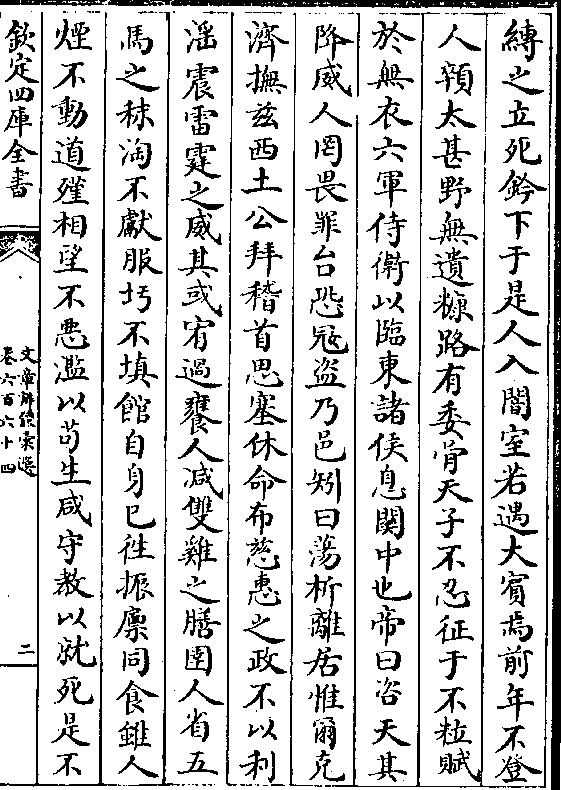 縳之立死鈐下于是人入闇室若遇大賓焉前年不登
人顇太甚野無遺糠路有委骨天子不忍征于不粒賦
於無衣六軍侍衛以臨東諸侯息闗中也帝曰咨天其
降威人罔畏罪台恐冦盗乃邑矧曰蕩析離居惟爾克
濟撫兹西土公拜稽首思塞休命布慈惠之政不以利
滛震雷霆之威其或宥過饔人减雙雞之膳圉人省五
馬之秣淘不獻服圬不填館自身已徃振廪同食雖人
煙不動道殣相望不悪濫以苟生咸守教以就死是不
欽定四庫全書
文章辨體彚選
卷六百六十四
二